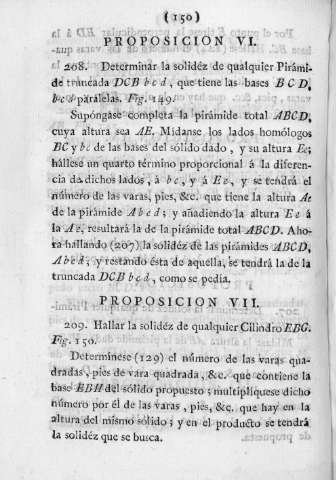 ( 150 )
PROPOSICION VI.
208. Determinar la solidéz de qualquier Pirámi-
de truncada DCB b c d, que tiene las bases B C D,
b c d paralelas. Fig. 149.
Supóngase completa la pirámide total ABCD,
cuya altura sea AE. Midanse los lados homólogos
BC y bc de las bases del sólido dado, y su altura Ee;
hállese un quarto término proporcional á la diferen-
cia da dichos lados, á bc, y á Ee, y se tendrá el
número de las varas, pies, &c. que tiene la altura Ae
de la pirámide A b c d; y añadiendo la altura Ee á
la Ae, resultará la de la pirámide total ABCD. Aho-
ra hallando (207) la solidéz de las pirámides ABCD,
A b c d; y restando ésta de aquella, se tendrá la de la
truncada DCB b c d, como se pedia.
PROPOSICION VII.
209. Hallar la solidéz de qualquier Cilindro EBG.
Fig. 150.
Determinese (129) el número de las varas qua-
dradas, pies de vara quadrada, &c. que contiene la
base EBH del sólido propuesto; multipliquese dicho
número por él de las varas, pies, &c. que hay en la
altura del mismo sólido; y en el producto se tendrá
la solidéz que se busca.